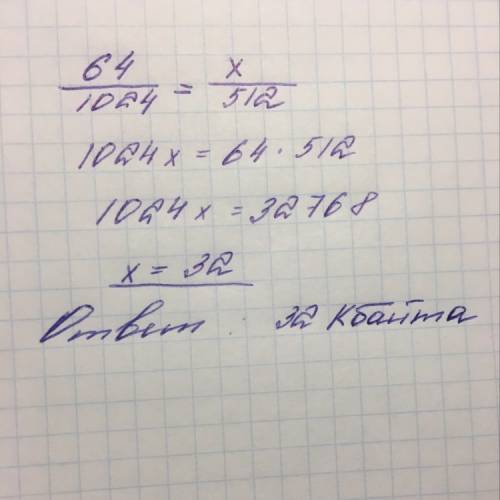 64/1024 = x/512
1024x = 64 · 512
1024x = 32768
x = 32
Ответ : 32 Кбайта